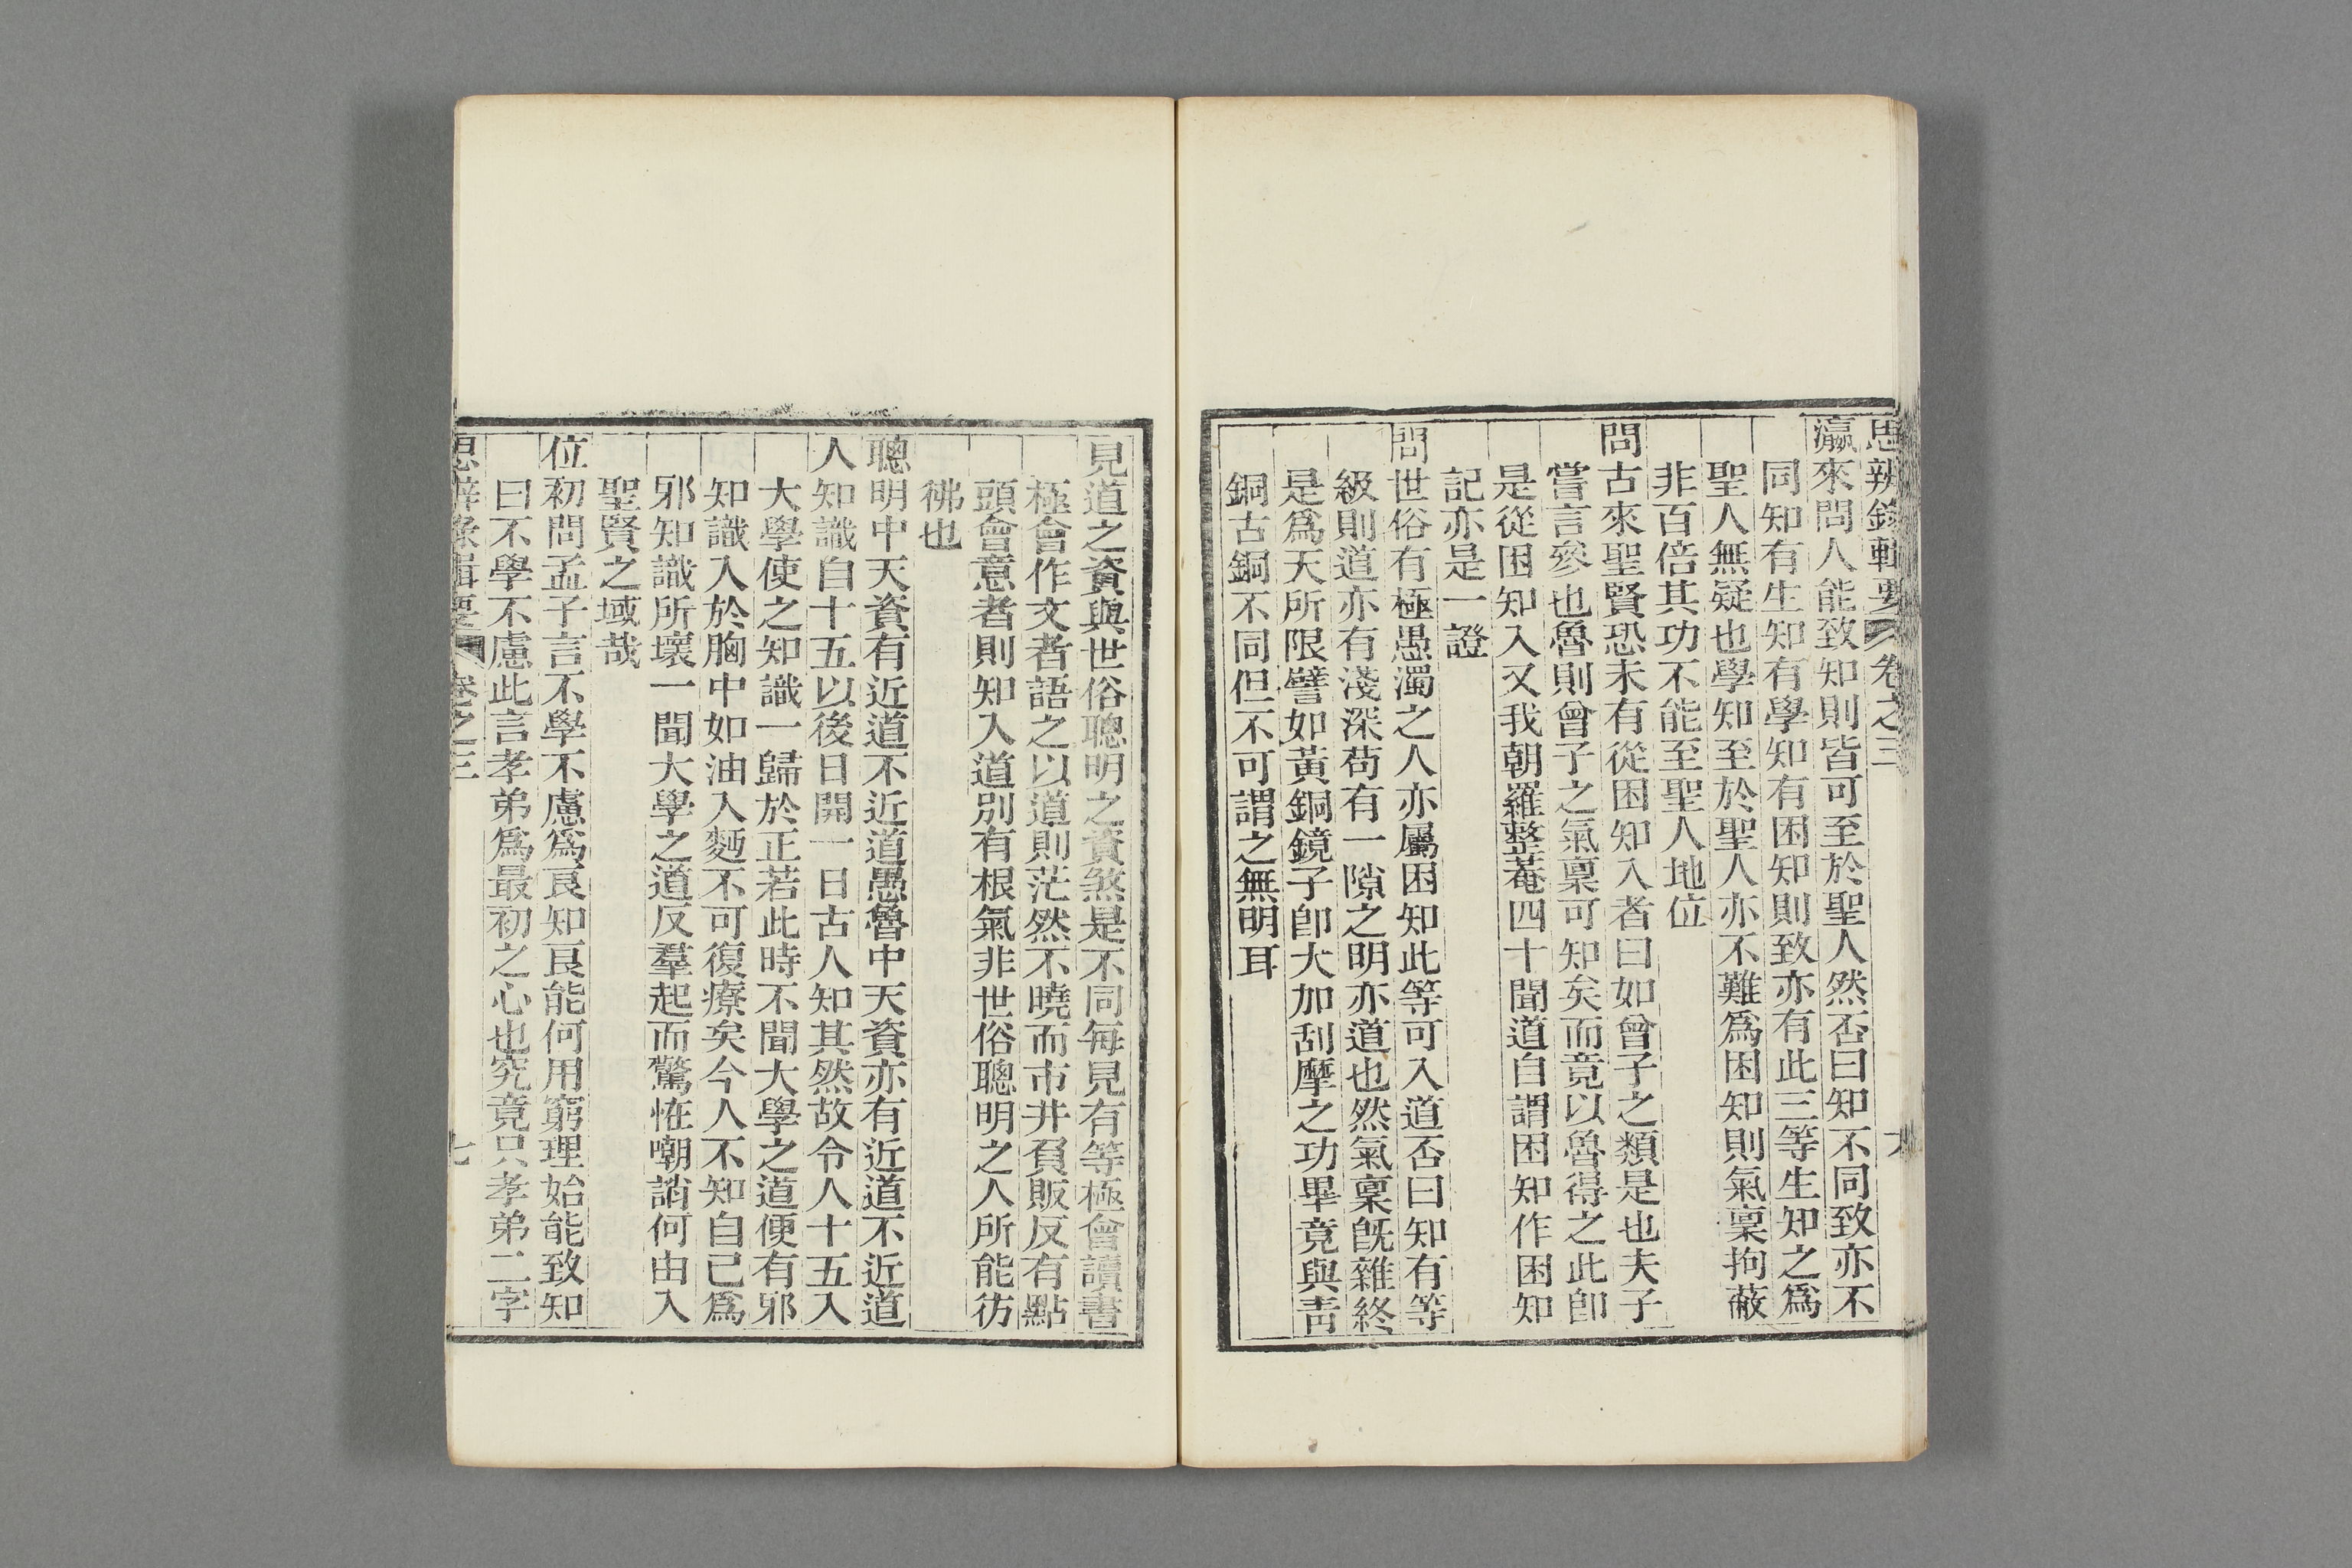 思辨錄輯要 卷之三
瀛來問人能致知則皆可至於聖人然否曰知不同致亦不
同知有生知有學知有困知則致亦有此三等生知之爲
聖人無疑也學知至於聖人亦不難爲困知則氣稟拘蔽
非百倍其功不能至聖人地位
問古來聖賢恐未有從困知入者曰如曾子之類是也夫子
嘗言參也魯則曾子之氣稟可知矣而竟以魯得之此卽
是從困知入又我朝羅整菴四十聞道自謂困知作困知
記亦是一證
問世俗有極愚濁之人亦屬困知此等可入道否曰知有等
級則道亦有淺深苟有一隙之明亦道也然氣稟旣雜終
是爲天所限譬如黃銅鏡子卽大加刮摩之功畢竟與靑
銅古銅不同但不可謂之無明耳
見道之資與世俗聰明之資煞是不同每見有等極會讀書
極會作文者語之以道則茫然不曉而市井負販反有點
頭會意者則知入道別有根氣非世俗聰明之人所能彷
彿也
聰明中天資有近道不近道愚魯中天資亦有近道不近道
人知識自十五以後日開一日古人知其然故令人十五入
大學使之知識一歸於正若此時不聞大學之道便有邪
知識入於胸中如油入麪不可復療矣今人不知自己爲
邪知識所壞一聞大學之道反羣起而驚怪嘲誚何由入
聖賢之域哉
位初問孟子言不學不慮爲良知良能何用窮理始能致知
曰不學不慮此言孝弟爲最初之心也究竟只孝弟二字
思辨錄輯要 卷之三 七